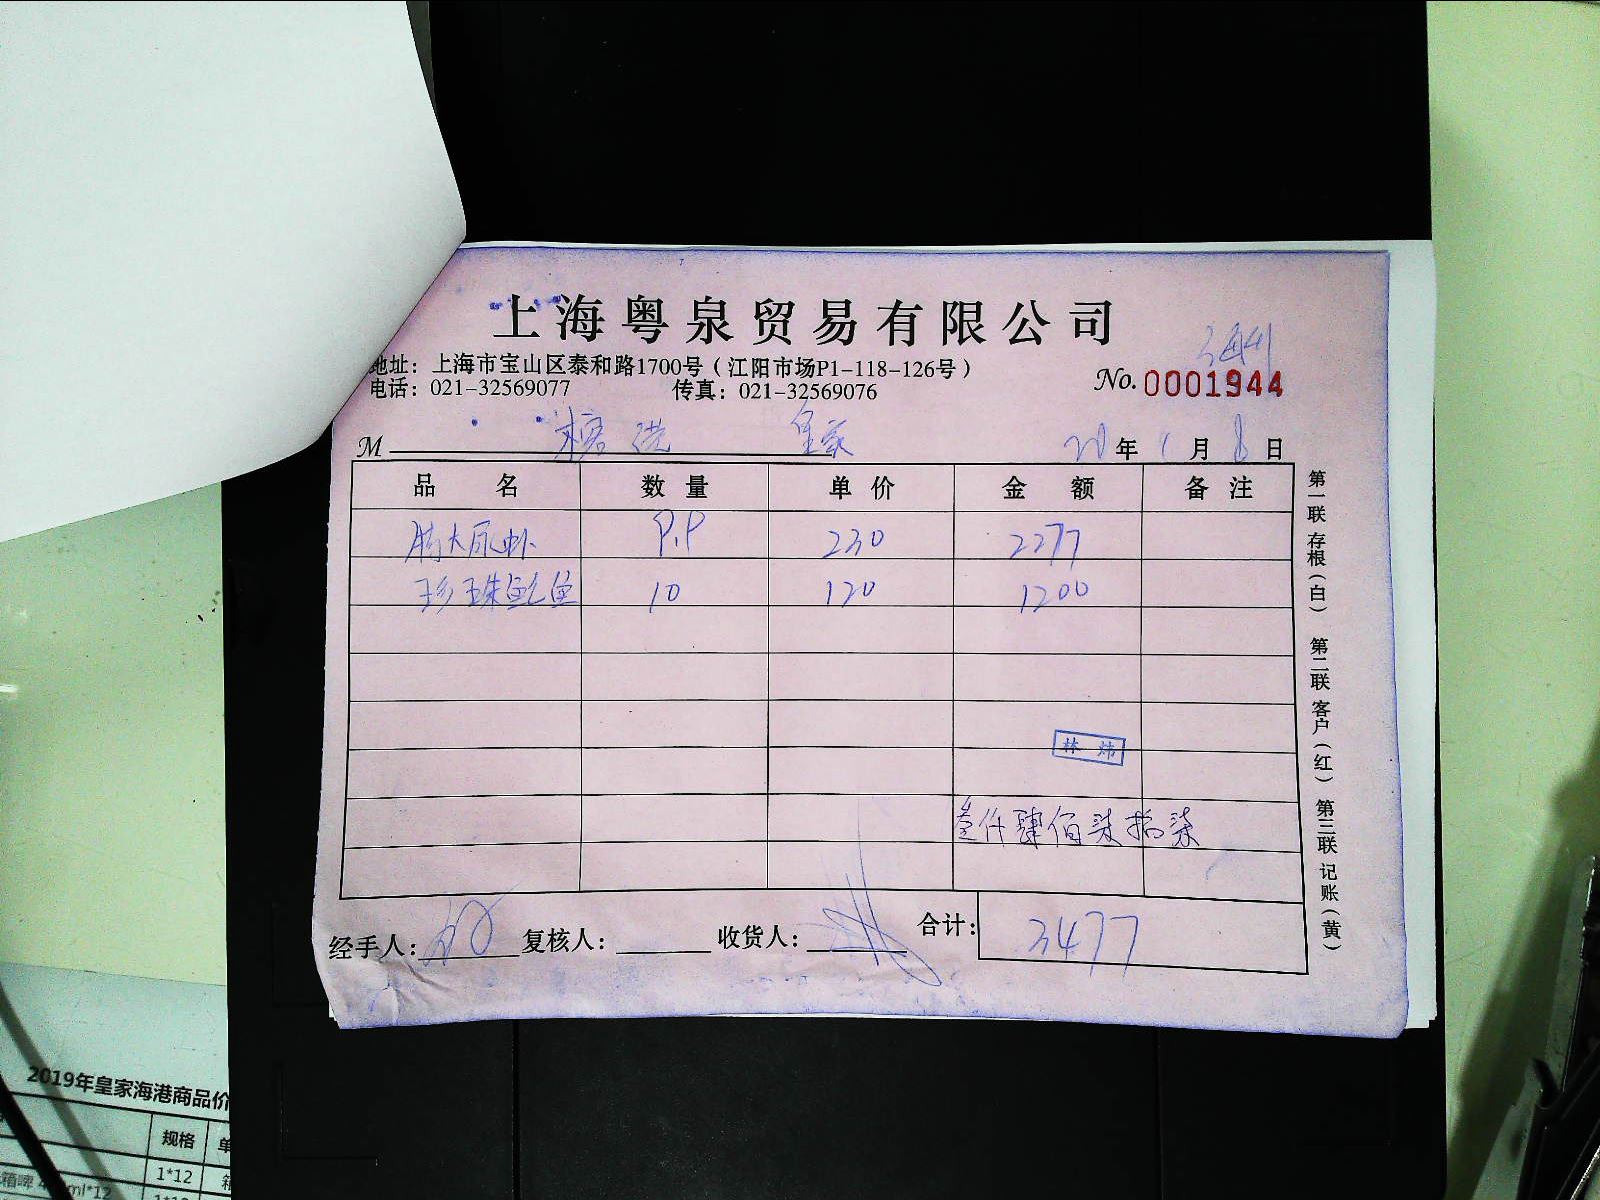 上海粤泉贸易有限公司
地址：上海市宝山区泰和路1700号（江阳市场P1-118-126号）
电话：021-32569077 传真：021-32569076
No. 0001944
M 皇家 20年1月8日
品 名 数 量 单 价 金 额 备 注
大尿虾 9.9 230 2277
珍珠鲍鱼 10 120 1200
林 炜
叁仟肆佰柒拾柒
经手人： 复核人： 收货人： 合计： 3477
第一联 存根（白） 第二联 客户（红） 第三联 记账（黄）
2019年皇家海港商品价
规格 单
1*12 箱
箱啤 ml*12